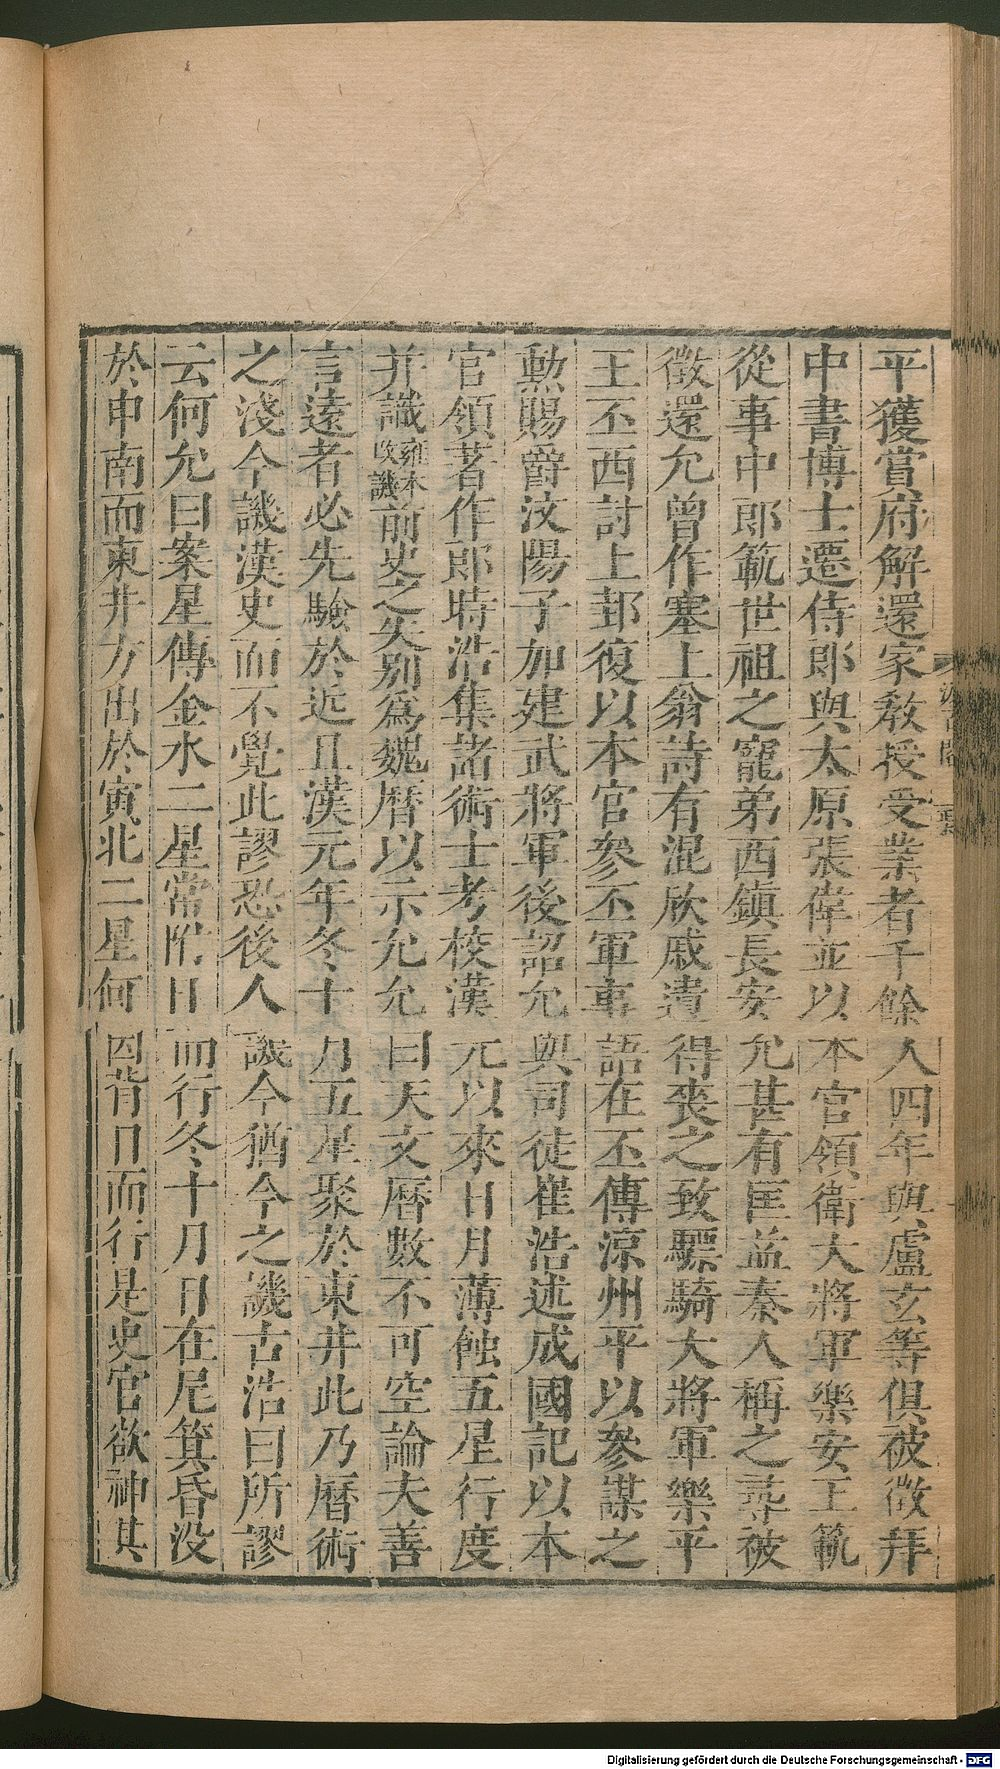 平獲賞府解還家教授受業者千餘人四年與盧玄等俱被徵拜
中書博士遷侍郎與太原張偉並以本官領衛大將軍樂安王範
從事中郎範世祖之寵弟西鎮長安允甚有匡益秦人稱之尋被
徵還允曾作塞上翁詩有混欣戚遺得喪之致驃騎大將軍樂平
王丕西討上邽復以本官參丕軍事語在丕傳涼州平以參謀之
勲賜爵汶陽子加建武將軍後詔允與司徒崔浩述成國記以本
官領著作郎時浩集諸術士考校漢元以來日月薄蝕五星行度
并識雍本改譏前史之失別爲魏曆以示允允曰天文曆數不可空論夫善
言遠者必先驗於近且漢元年冬十月五星聚於東井此乃曆術
之淺今譏漢史而不覺此謬恐後人譏今猶今之譏古浩曰所謬
云何允曰案星傳金水二星常附日而行冬十月日在尾箕昏没
於申南而東井方出於寅北二星何因背日而行是史官欲神其
Digitalisierung gefördert durch die Deutsche Forschungsgemeinschaft - DFG